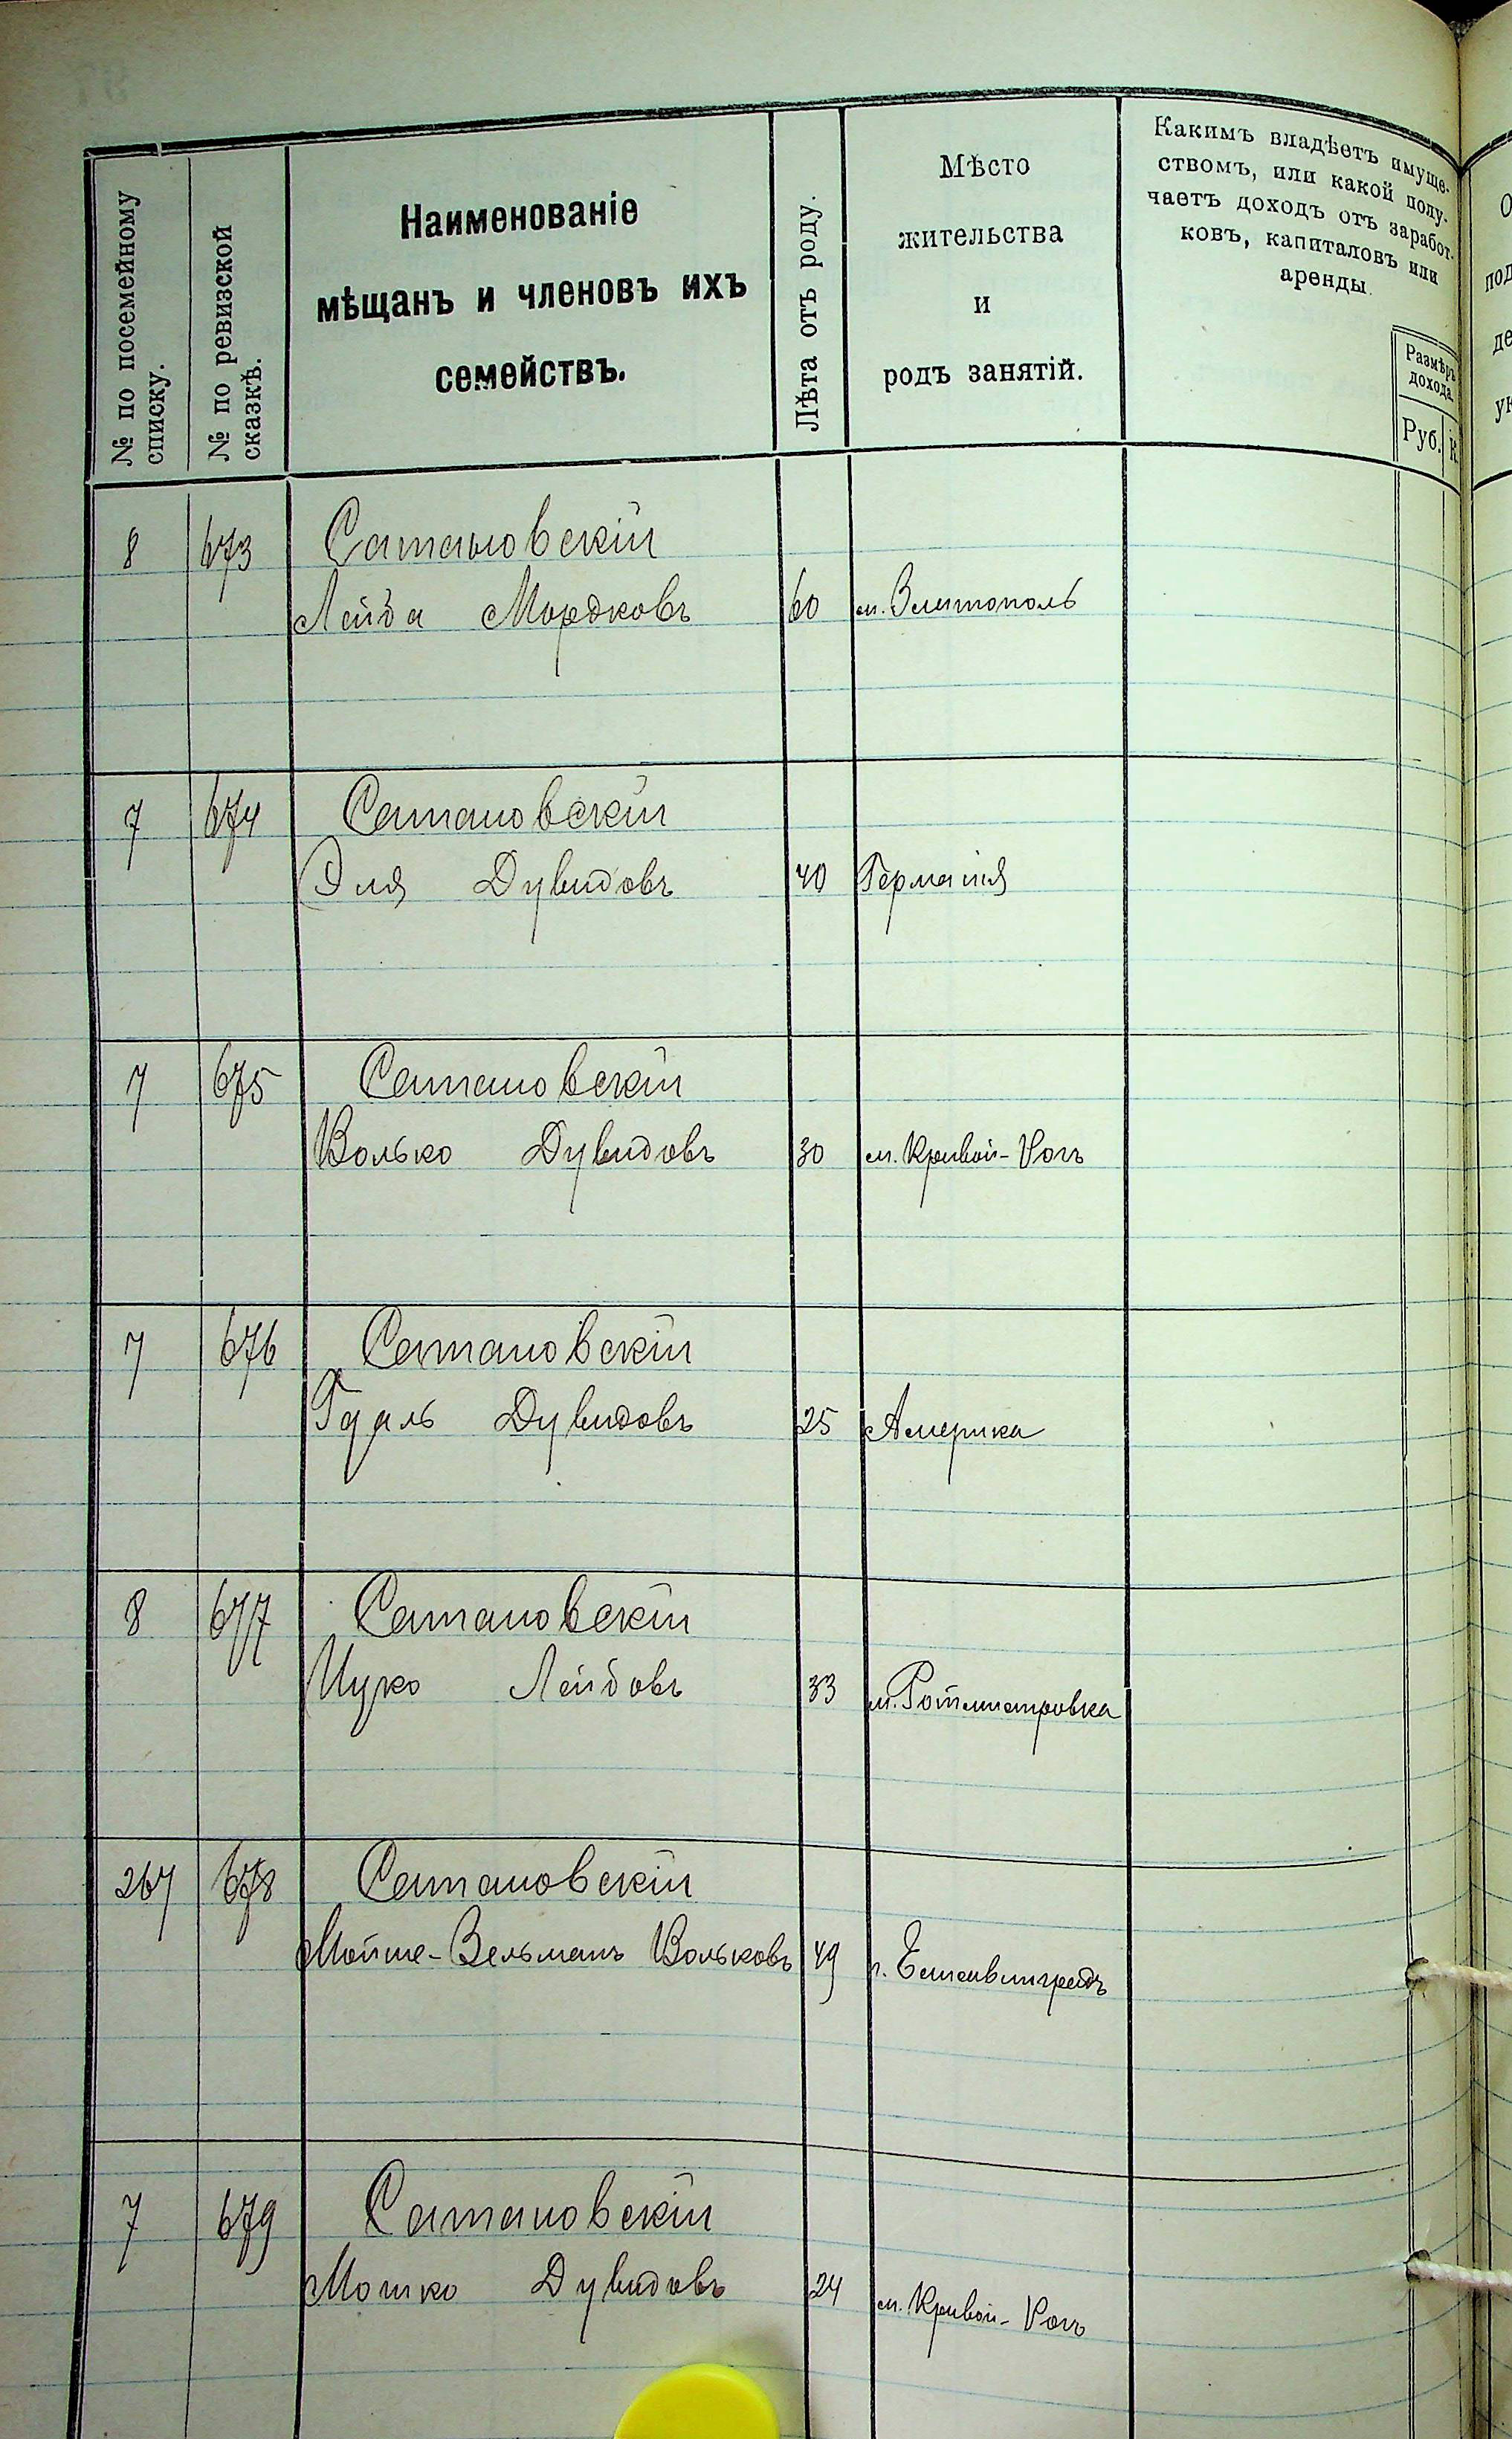 № по посемейному списку.
№ по ревизской сказкѣ.
Наименованіе
мѣщанъ и членовъ ихъ
семействъ.
Лѣта отъ роду.
Мѣсто
жительства
и
родъ занятій.
Какимъ владѣетъ имуще-
ствомъ, или какой полу-
чаетъ доходъ отъ заработ-
ковъ, капиталовъ или
аренды.
Размѣръ
дохода.
Руб. К.
8 673 Сатановскій
Лейба Мордковъ 60 м. Златополь
7 674 Сатановскій
Эля Дувидовъ 40 Германія
7 675 Сатановскій
Волько Дувидовъ 30 м. Кривой-Рогъ
7 676 Сатановскій
Гдаль Дувидовъ 25 Америка
8 677 Сатановскій
Ицко Лейбовъ 33 м. Ротмистровка
267 678 Сатановскій
Мойше-Зельманъ Вольковъ 49 г. Елисаветградъ
7 679 Сатановскій
Мошко Дувидовъ 24 м. Кривой-Рогъ